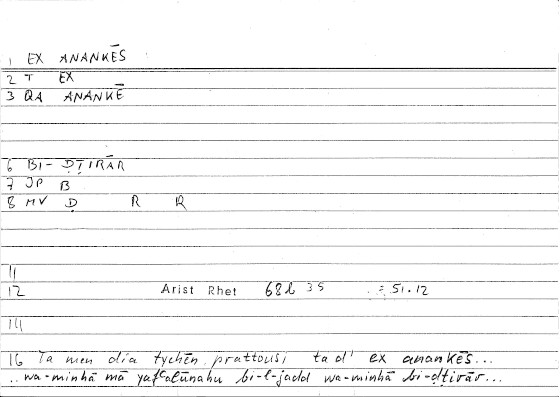 1 EX ANANKĒS
2 T EX
3 QA ANANKĒ
6 BI- ḌṬIRĀR
7 JP B
8 MV Ḍ R R
11
12 Arist Rhet 68b 35 = 51.12
14
16 Ta men dia tychēn prattousi ta d' ex anankēs...
..wa-minhā mā yafʿalūnahu bi-l-jadd wa-minhā bi-ḍṭirār...